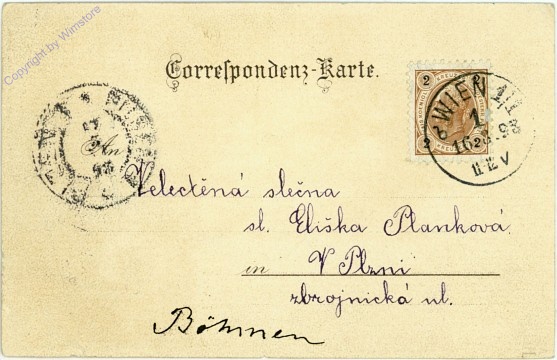 Copyright by Wimstore
Correspondenz-Karte.
2 KREUZER 2
WIEN 1/1
1
16.
98
Velectěná slečna
sl. Eliška Planková
in V Plzni
zbrojnická ul.
Böhmen